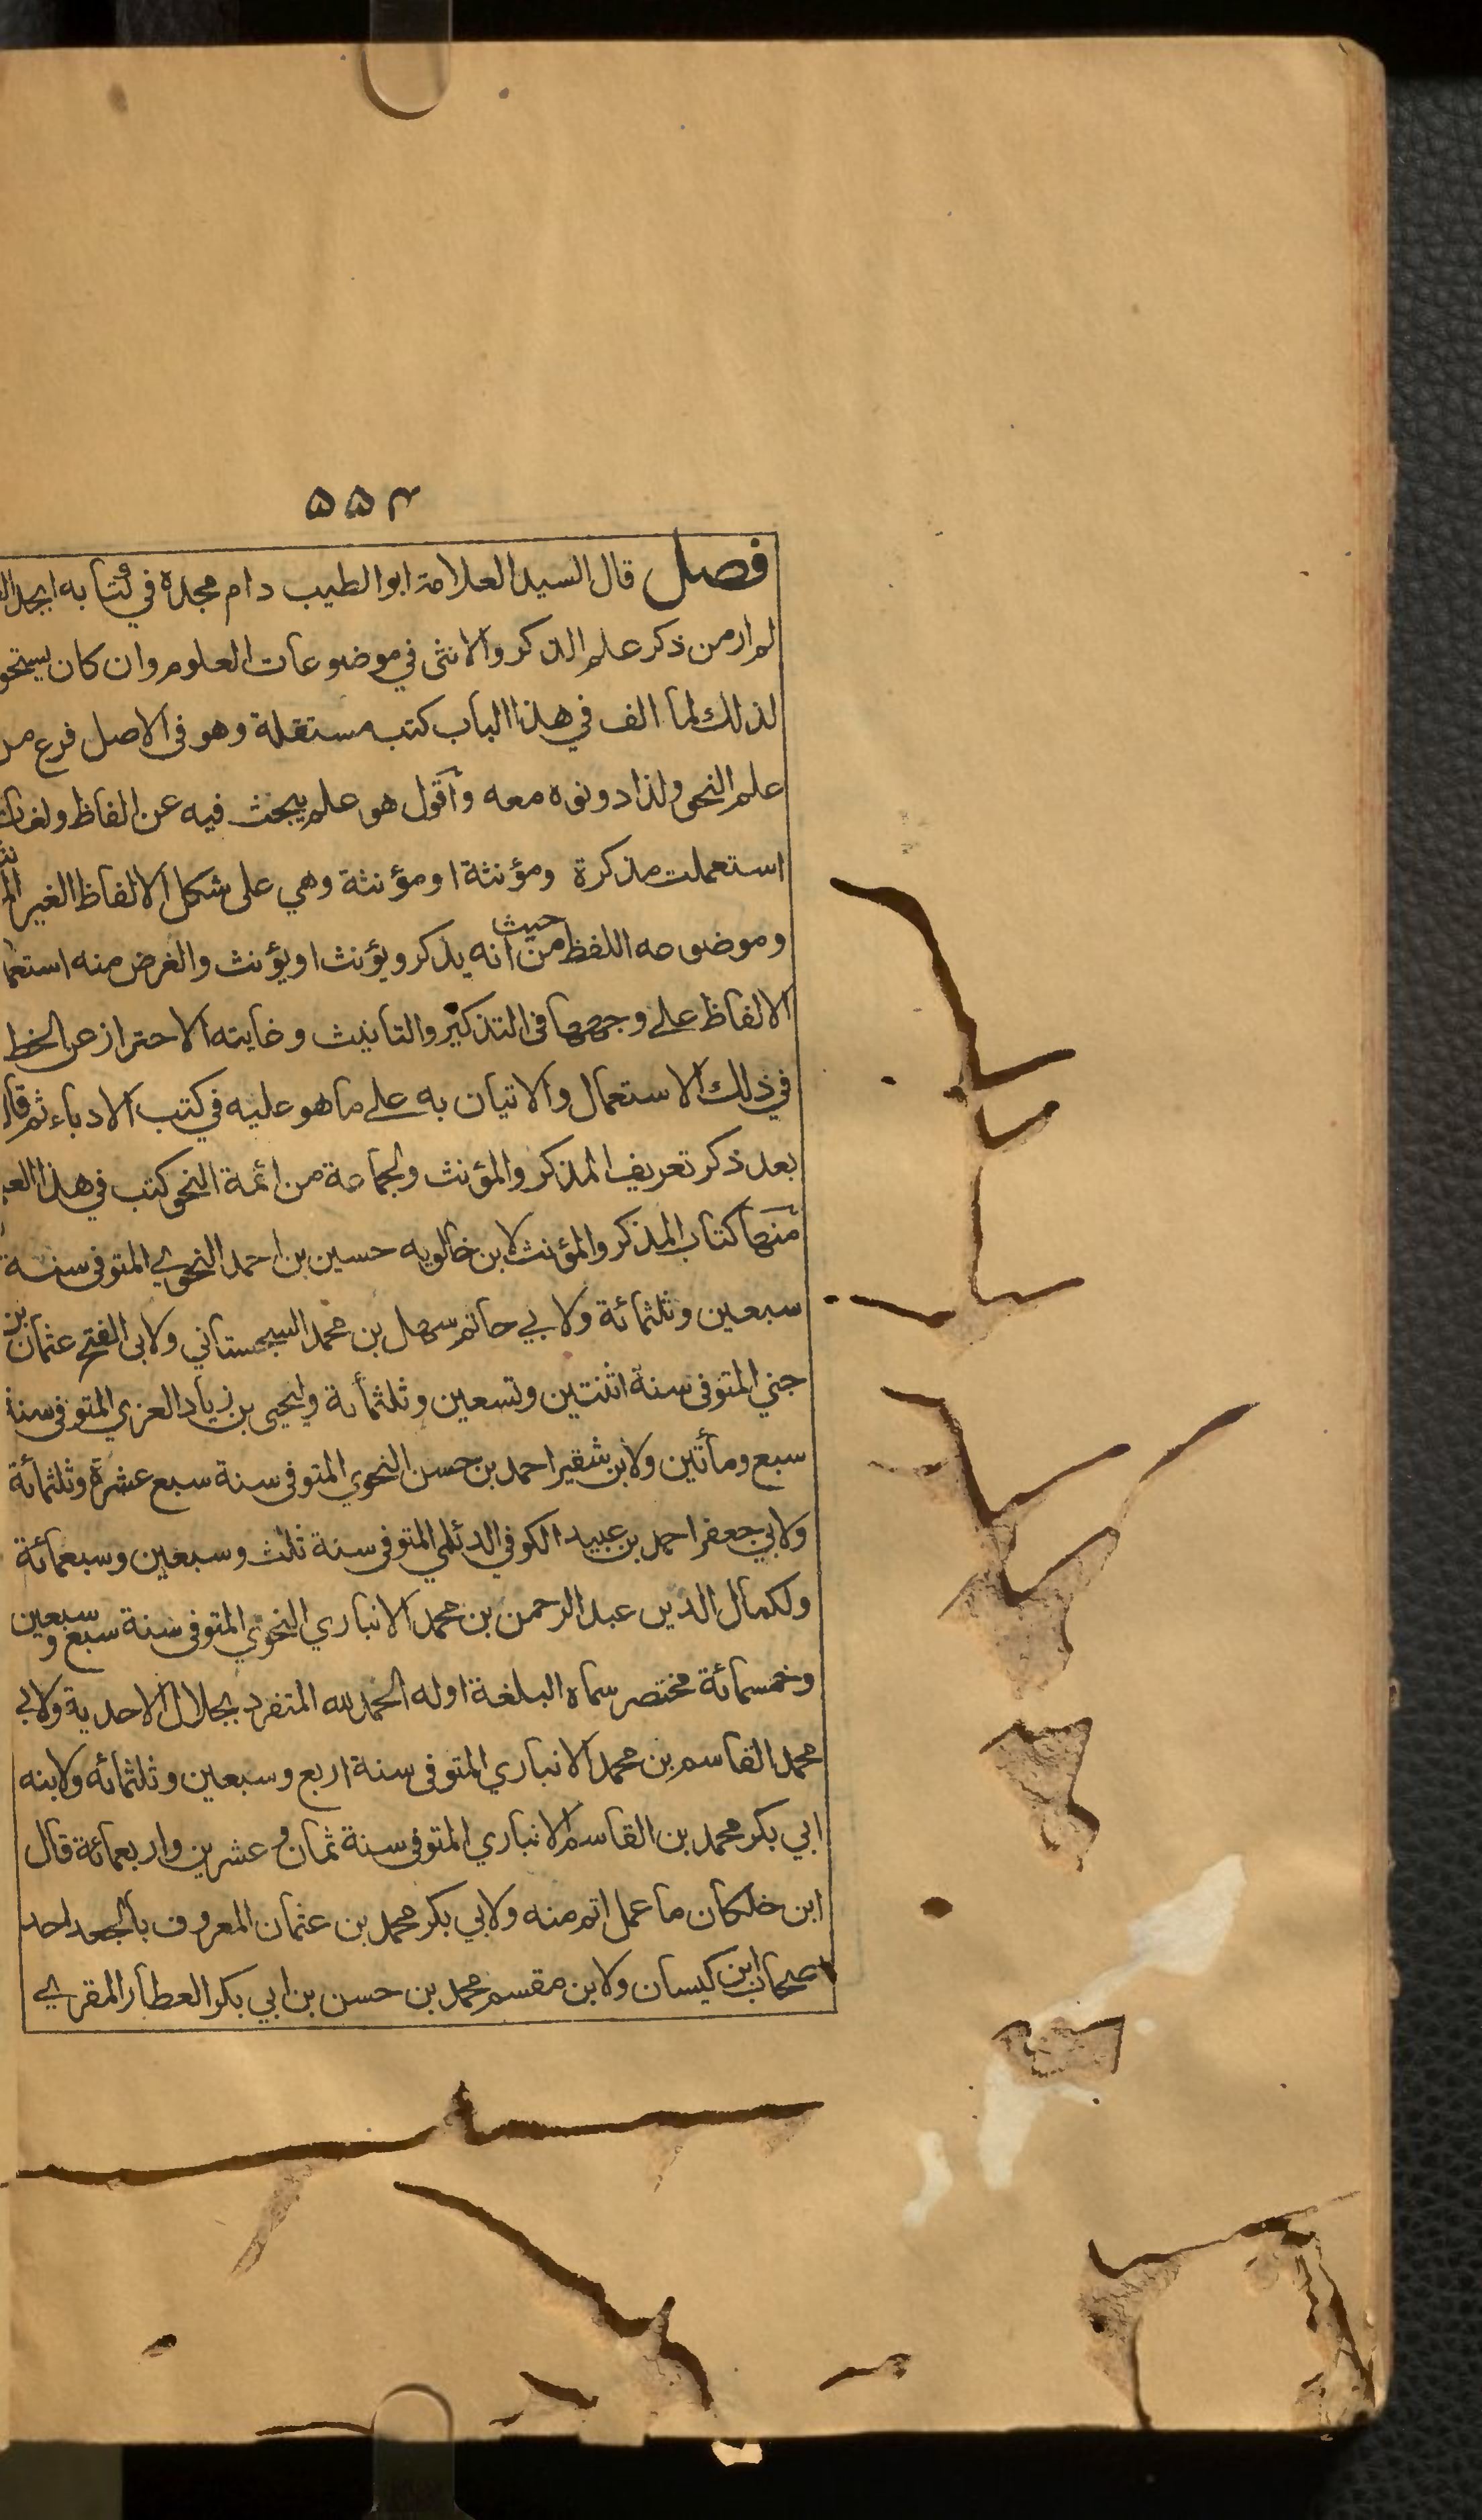 ۵۵۴
فصل قال السيد العلامة ابو الطيب دام مجده في كتابه ابجد
لم ار من ذكر علم الذكر والانثى في موضوعات العلوم وان كان يستحق
لذلك لما الف في هذا الباب كتب مستقلة وهو فى الاصل فرع من
علم النحو ولذا دونوه معه وأقول هو علم يبحث فيه عن الفاظ ولغات
استعملت مذكرة ومؤنثة او مؤنثة وهي على شكل الالفاظ الغير
وموضوعه اللفظ من حيث انه يذكر ويؤنث او يؤنث والغرض منه استعما
الالفاظ على وجهها فى التذكير والتانيث وغايته الاحتراز عن الخطا
في ذلك الاستعمال والاتيان به على ما هو عليه في كتب الادباء ثم قال
بعد ذكر تعريف المذكر والمؤنث ولجماعة من ائمة النحو كتب في هذا
منها كتاب المذكر والمؤنث لابن خالويه حسين بن احمد النحوي المتوفى سنة
سبعين وثلثمائة ولابي حاتم سهل بن محمد السجستاني ولابى الفتح عثمان بن
جني المتوفى سنة اثنتين وتسعين وثلثمائة وليحيى بن زياد العزي المتوفى سنة
سبع ومأتين ولابن شقير احمد بن حسن النحوي المتوفى سنة سبع عشرة وثلثمائة
ولابي جعفر احمد بن عبيد الكوفي الدئلمي المتوفى سنة ثلث وسبعين وسبعمائة
ولكمال الدين عبد الرحمن بن محمد الانباري النحوي المتوفى سنة سبع وسبعين
وخمسمائة مختصر سماه البلغة اوله الحمد لله المتفرد بجلال الاحدية ولابي
محمد القاسم بن محمد الانباري المتوفى سنة اربع وسبعين وثلثمائه ولابنه
ابي بكر محمد بن القاسم الانباري المتوفى سنة ثمان وعشرين واربعمائة قال
ابن خلكان ما عمل اتم منه ولابي بكر محمد بن عثمان المعروف بالجعد احد
اصحاب ابن كيسان ولابن مقسم محمد بن حسن بن ابي بكر العطار المقري